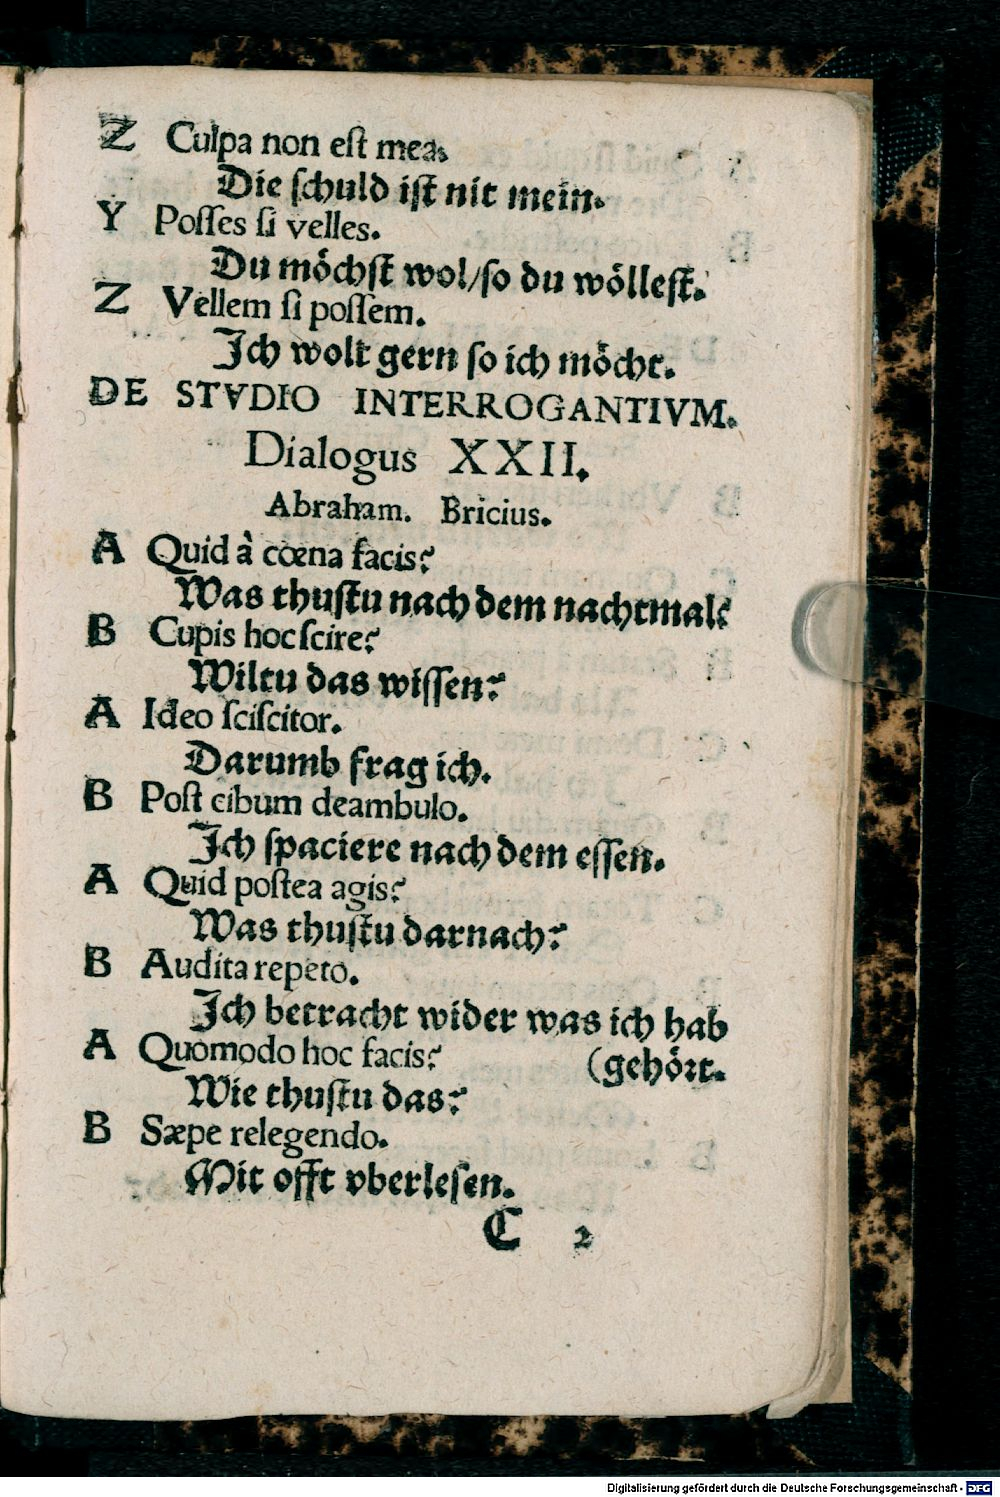 Z Culpa non eſt mea.
Die ſchuld iſt nit mein.
Y Poſſes ſi velles.
Du möchſt wol/ſo du wölleſt.
Z Vellem ſi poſſem.
Ich wolt gern ſo ich möcht.
DE STVDIO INTERROGANTIVM.
Dialogus XXII.
Abraham. Bricius.
A Quid à cœna facis?
Was thuſtu nach dem nachtmal?
B Cupis hoc ſcire?
Wiltu das wiſſen?
A Ideo ſciſcitor.
Darumb frag ich.
B Poſt cibum deambulo.
Ich ſpaciere nach dem eſſen.
A Quid poſtea agis?
Was thuſtu darnach?
B Audita repeto.
Ich betracht wider was ich hab
A Quomodo hoc facis? (gehört.
Wie thuſtu das?
B Sæpe relegendo.
Mit offt vberleſen.
C 2
Digitalisierung gefördert durch die Deutsche Forschungsgemeinschaft - DFG